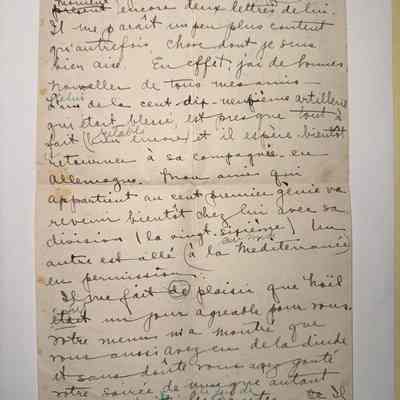 moment
partout encore deux lettres de lui.
Il me paraît un peu plus content
qu'autrefois, chose dont je suis
bien aise. En effet, j'ai de bonnes
nouvelles de tous mes amis
Celui
L'un de la cent-dix-neufième artillerie
qui était blessé, est presque tout à
fait (bien encore) et il espère bientôt
rétabli
retourner à sa compagnie en
Allemagne. Mon ami qui
appartient au cent premier génie va
revenir bientôt chez lui avec sa
division (la vingt-sixième) Un
autre est allé (à la Mediterranée)
en permission.
Il me fait de plaisir que Noël
était un jour agreable pour vous.
Votre menu m'a montré que
vous aussi avez eu de la dinde
et sans doute vous avez goûté
votre soirée de